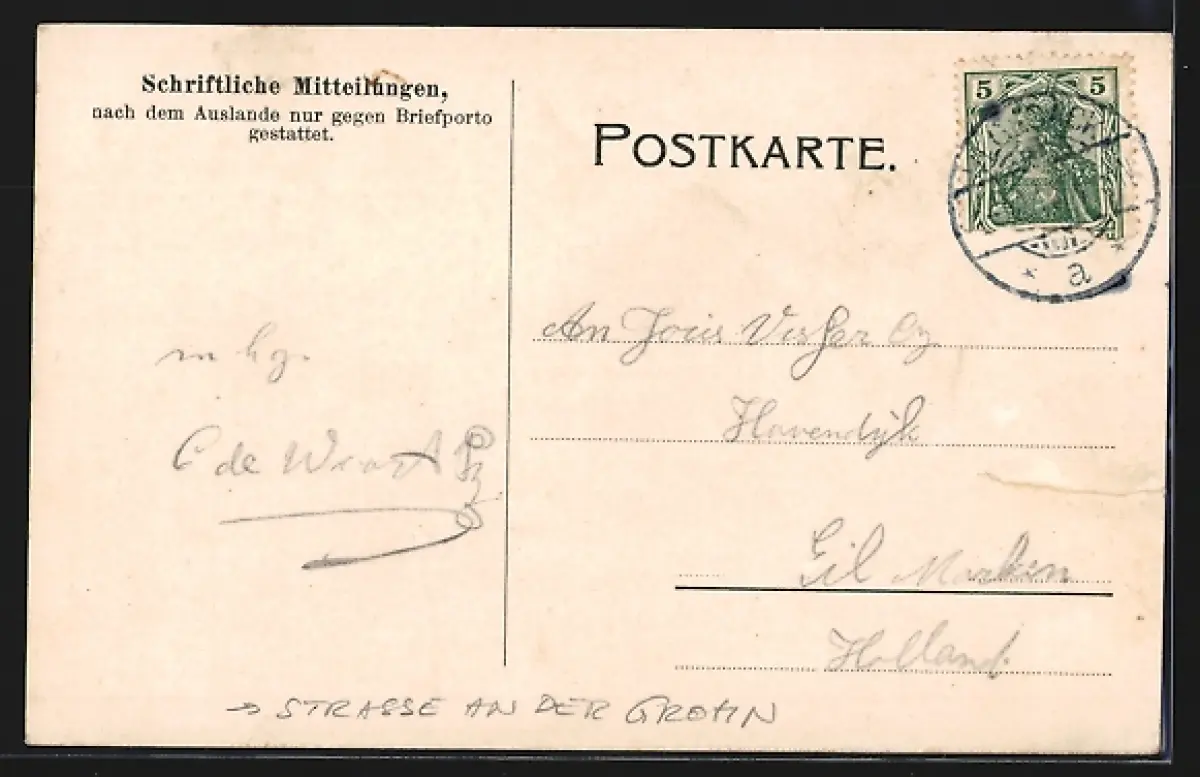 Schriftliche Mitteilungen,
nach dem Auslande nur gegen Briefporto
gestattet.
POSTKARTE.
5 5
a
An Visser
m hg.
Havendijk
C de
Eil Marken
Holland
→ STRASSE AN DER GROHN